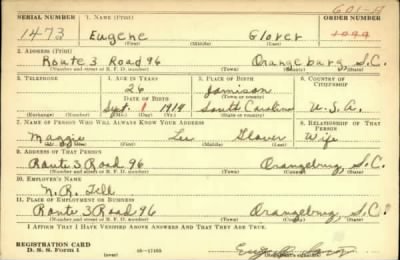 601-A
SERIAL NUMBER 1. NAME (Print) ORDER NUMBER
1473 Eugene Glover
(First) (Middle) (Last)
2. ADDRESS (Print)
Route 3 Road 96 Orangeburg S.C.
(Number and street or R. F. D. number) (Town) (County) (State)
3. TELEPHONE 4. AGE IN YEARS 5. PLACE OF BIRTH 6. COUNTRY OF CITIZENSHIP
26 Jamison
DATE OF BIRTH (Town or county)
Sept. 1 1914 South Carolina U.S.A.
(Exchange) (Number) (Mo.) (Day) (Yr.) (State or country)
7. NAME OF PERSON WHO WILL ALWAYS KNOW YOUR ADDRESS 8. RELATIONSHIP OF THAT PERSON
Maggie Lee Glover Wife
(Mr., Mrs., Miss) (First) (Middle) (Last)
9. ADDRESS OF THAT PERSON
Route 3 Road 96 Orangeburg, S.C.
(Number and street or R. F. D. number) (Town) (County) (State)
10. EMPLOYER'S NAME
11. PLACE OF EMPLOYMENT OR BUSINESS
Route 3 Road 96 Orangeburg, S.C.
(Number and street or R. F. D. number) (Town) (County) (State)
I AFFIRM THAT I HAVE VERIFIED ABOVE ANSWERS AND THAT THEY ARE TRUE.
REGISTRATION CARD
D. S. S. Form 1 (over)